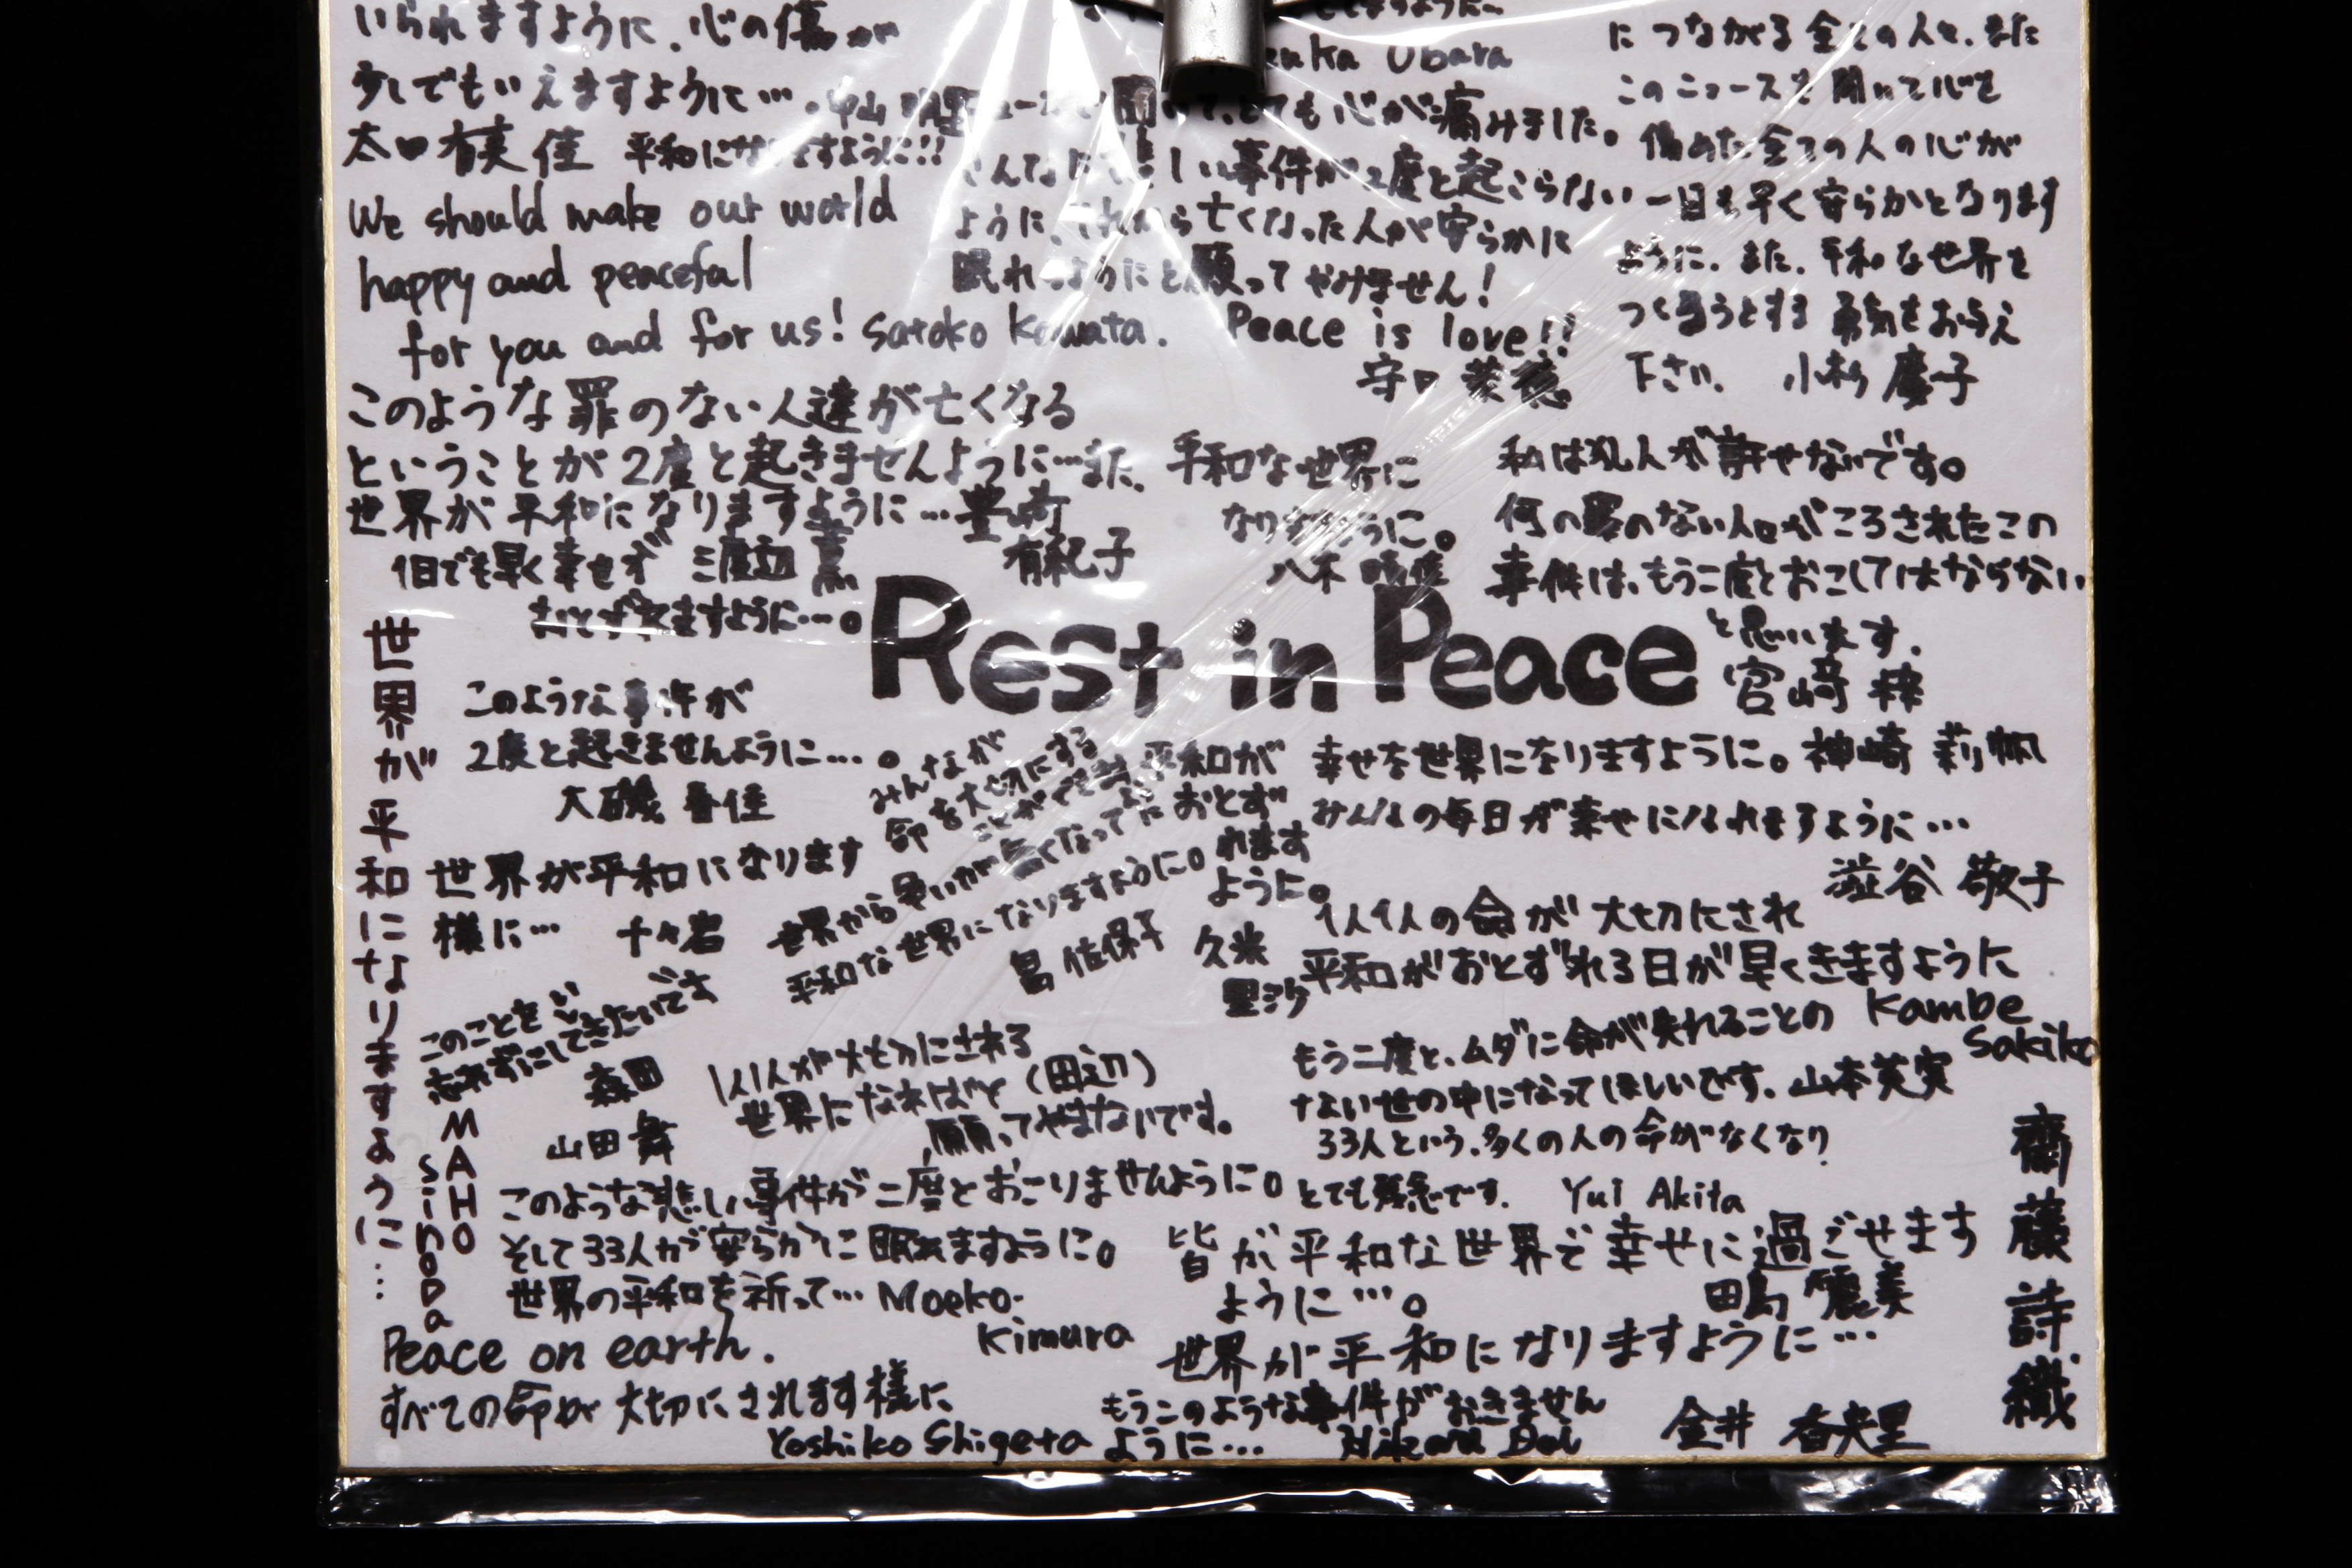 いられますように。心の傷が
少しでもいえますように…
太田有美佳
平和になりますように!!
We should make our world
happy and peaceful
for you and for us! Satoko Kawata.
Obara
ニュースを聞いて、とても心が痛みました。
事件が2度と起こらない
ように、それから亡くなった人が安らかに
眠れるようにと願ってやみません!
Peace is love!!
守口
につながる全ての人と、また
このニュースを聞いて心を
傷めた全ての人の心が
一日も早く安らかとなります
ように。また、平和な世界を
つくろうとする勇気をお与え
下さい。 小杉慶子
このような罪のない人達が亡くなる
ということが2度と起きませんように…また、
世界が平和になりますように…豊崎
有紀子
1日でも早く幸せが 渡辺薫
おとずれますように…。
平和な世界に
なりますように。
八木晴佳
私は犯人が許せないです。
何の罪のない人がころされたこの
事件は、もう二度とおこしてはならない
と思います。
宮崎 梓
Rest in Peace
世界が平和になりますように…
このような事件が
2度と起きませんように…。
大磯春佳
世界が平和になります
様に… 千々岩
みんなが
命を大切にする
ことができ
世界から争いが無くなって
平和な世界になりますように。
昌 佐保子
平和が
おとず
れます
ように。
久米
里沙
幸せな世界になりますように。神崎莉帆
みんなの毎日が幸せになれますように…
澁谷敬子
1人1人の命が大切にされ
平和がおとずれる日が早くきますように
Kambe
Sakiko
このことを
忘れずにしてきたいです
森田
山田舞
MAHO
SinoDa
1人1人が大切にされる
世界になればと(田辺)
願ってやまないです。
もう二度と、ムダに命が失れることの
ない世の中になってほしいです。山本英実
33人という、多くの人の命がなくなり
とても残念です。 Yui Akita
このような悲しい事件が二度とおこりませんように。
そして33人が安らかに眠れますように。
世界の平和を祈って… Moeko
Kimura
皆が平和な世界で幸せに過ごせます
ように…。
田島麗美
齋藤詩織
Peace on earth.
すべての命が大切にされます様に
Yoshiko Shigeta
世界が平和になりますように…
金井 香央里
もうこのような事件がおきません
ように… Hikaru Doi